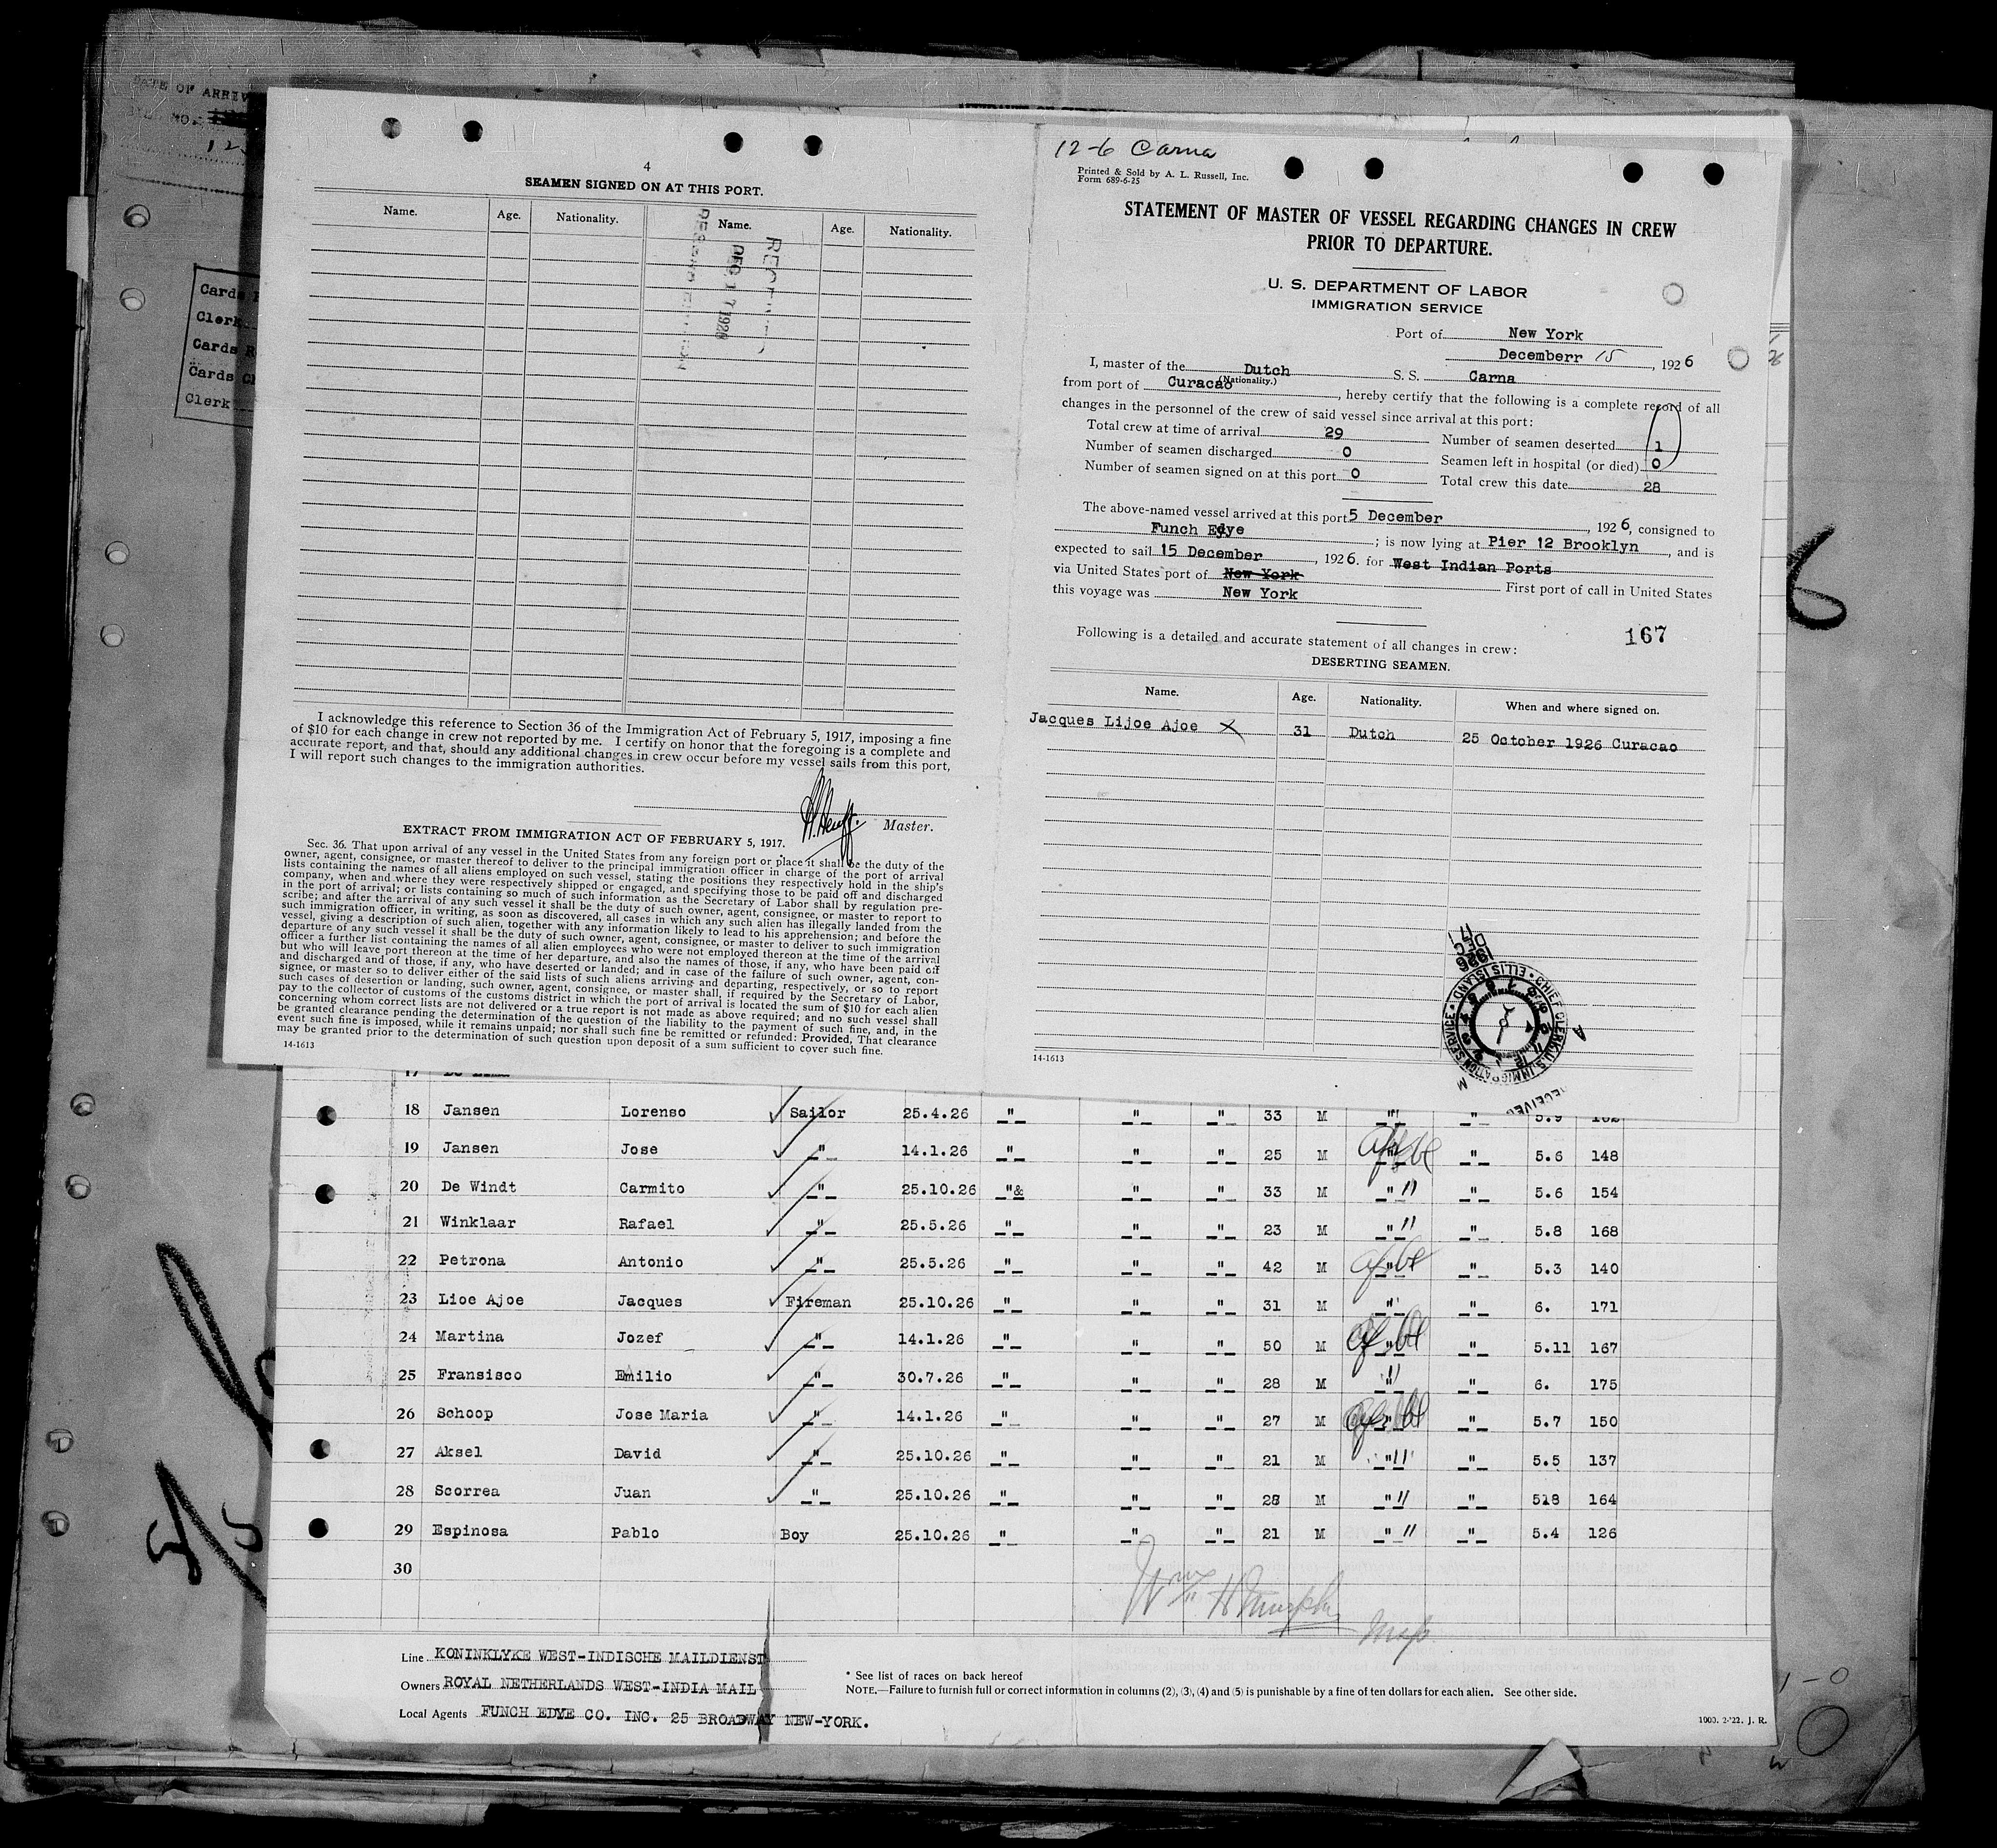 DATE OF ARRIV
NO.
12
Cards
Clerk
Cards R
Cards Cl
Clerk
4
SEAMEN SIGNED ON AT THIS PORT.
Name. Age. Nationality. Name. Age. Nationality.
DEC 17 1926
I acknowledge this reference to Section 36 of the Immigration Act of February 5, 1917, imposing a fine
of $10 for each change in crew not reported by me. I certify on honor that the foregoing is a complete and
accurate report, and that, should any additional changes in crew occur before my vessel sails from this port,
I will report such changes to the immigration authorities.
Master.
EXTRACT FROM IMMIGRATION ACT OF FEBRUARY 5, 1917.
Sec. 36. That upon arrival of any vessel in the United States from any foreign port or place it shall be the duty of the
owner, agent, consignee, or master thereof to deliver to the principal immigration officer in charge of the port of arrival
lists containing the names of all aliens employed on such vessel, stating the positions they respectively hold in the ship's
company, when and where they were respectively shipped or engaged, and specifying those to be paid off and discharged
in the port of arrival; or lists containing so much of such information as the Secretary of Labor shall by regulation pre-
scribe; and after the arrival of any such vessel it shall be the duty of such owner, agent, consignee, or master to report to
such immigration officer, in writing, as soon as discovered, all cases in which any such alien has illegally landed from the
vessel, giving a description of such alien, together with any information likely to lead to his apprehension; and before the
departure of any such vessel it shall be the duty of such owner, agent, consignee, or master to deliver to such immigration
officer a further list containing the names of all alien employees who were not employed thereon at the time of the arrival
but who will leave port thereon at the time of her departure, and also the names of those, if any, who have been paid off
and discharged and of those, if any, who have deserted or landed; and in case of the failure of such owner, agent, con-
signee, or master so to deliver either of the said lists of such aliens arriving and departing, respectively, or so to report
such cases of desertion or landing, such owner, agent, consignee, or master shall, if required by the Secretary of Labor,
pay to the collector of customs of the customs district in which the port of arrival is located the sum of $10 for each alien
concerning whom correct lists are not delivered or a true report is not made as above required; and no such vessel shall
be granted clearance pending the determination of the question of the liability to the payment of such fine, and, in the
event such fine is imposed, while it remains unpaid; nor shall such fine be remitted or refunded: Provided, That clearance
may be granted prior to the determination of such question upon deposit of a sum sufficient to cover such fine.
14-1613
12-6 Carna
Printed & Sold by A. L. Russell, Inc.
Form 689-6-25
STATEMENT OF MASTER OF VESSEL REGARDING CHANGES IN CREW
PRIOR TO DEPARTURE.
U. S. DEPARTMENT OF LABOR
IMMIGRATION SERVICE
Port of New York
Decemberr 15, 1926
I, master of the Dutch S. S. Carna
(Nationality.)
from port of Curacao, hereby certify that the following is a complete record of all
changes in the personnel of the crew of said vessel since arrival at this port:
Total crew at time of arrival 29 Number of seamen deserted 1
Number of seamen discharged 0 Seamen left in hospital (or died) 0
Number of seamen signed on at this port 0 Total crew this date 28
The above-named vessel arrived at this port 5 December, 1926, consigned to
Funch Edye; is now lying at Pier 12 Brooklyn, and is
expected to sail 15 December, 1926. for West Indian Ports
via United States port of New York First port of call in United States
this voyage was New York
167
Following is a detailed and accurate statement of all changes in crew:
DESERTING SEAMEN.
Name. Age. Nationality. When and where signed on.
Jacques Lijoe Ajoe X 31 Dutch 25 October 1926 Curacao
1926 DEC 17
CHIEF CLERK U.S. IMMIGRATION SERVICE • ELLIS ISLAND •
RECEIVED
14-1613
17
18 Jansen Lorenso Sailor 25.4.26 -"- -"- -"- 33 M -"- -"- 5.9 162
19 Jansen Jose -"- 14.1.26 -"- -"- -"- 25 M -"- -"- 5.6 148
20 De Windt Carmito -"- 25.10.26 -"& -"- -"- 33 M -"- " -"- 5.6 154
21 Winklaar Rafael -"- 25.5.26 -"- -"- -"- 23 M -"- " -"- 5.8 168
22 Petrona Antonio -"- 25.5.26 -"- -"- -"- 42 M -"- -"- 5.3 140
23 Lioe Ajoe Jacques Fireman 25.10.26 -"- -"- -"- 31 M -"- -"- 6. 171
24 Martina Jozef -"- 14.1.26 -"- -"- -"- 50 M -"- -"- 5.11 167
25 Fransisco Emilio -"- 30.7.26 -"- -"- -"- 28 M -"- -"- 6. 175
26 Schoop Jose Maria -"- 14.1.26 -"- -"- -"- 27 M -"- -"- 5.7 150
27 Aksel David -"- 25.10.26 -"- -"- -"- 21 M -"- " -"- 5.5 137
28 Scorrea Juan -"- 25.10.26 -"- -"- -"- 28 M -"- " -"- 518 164
29 Espinosa Pablo Boy 25.10.26 -"- -"- -"- 21 M -"- " -"- 5.4 126
30
Wm H Murphy
Line KONINKLYKE WEST-INDISCHE MAILDIENST
Owners ROYAL NETHERLANDS WEST-INDIA MAIL
Local Agents FUNCH EDYE CO. INC. 25 BROADWAY NEW-YORK.
* See list of races on back hereof
NOTE.—Failure to furnish full or correct information in columns (2), (3), (4) and (5) is punishable by a fine of ten dollars for each alien. See other side.
1000. 2-'22. J. R.